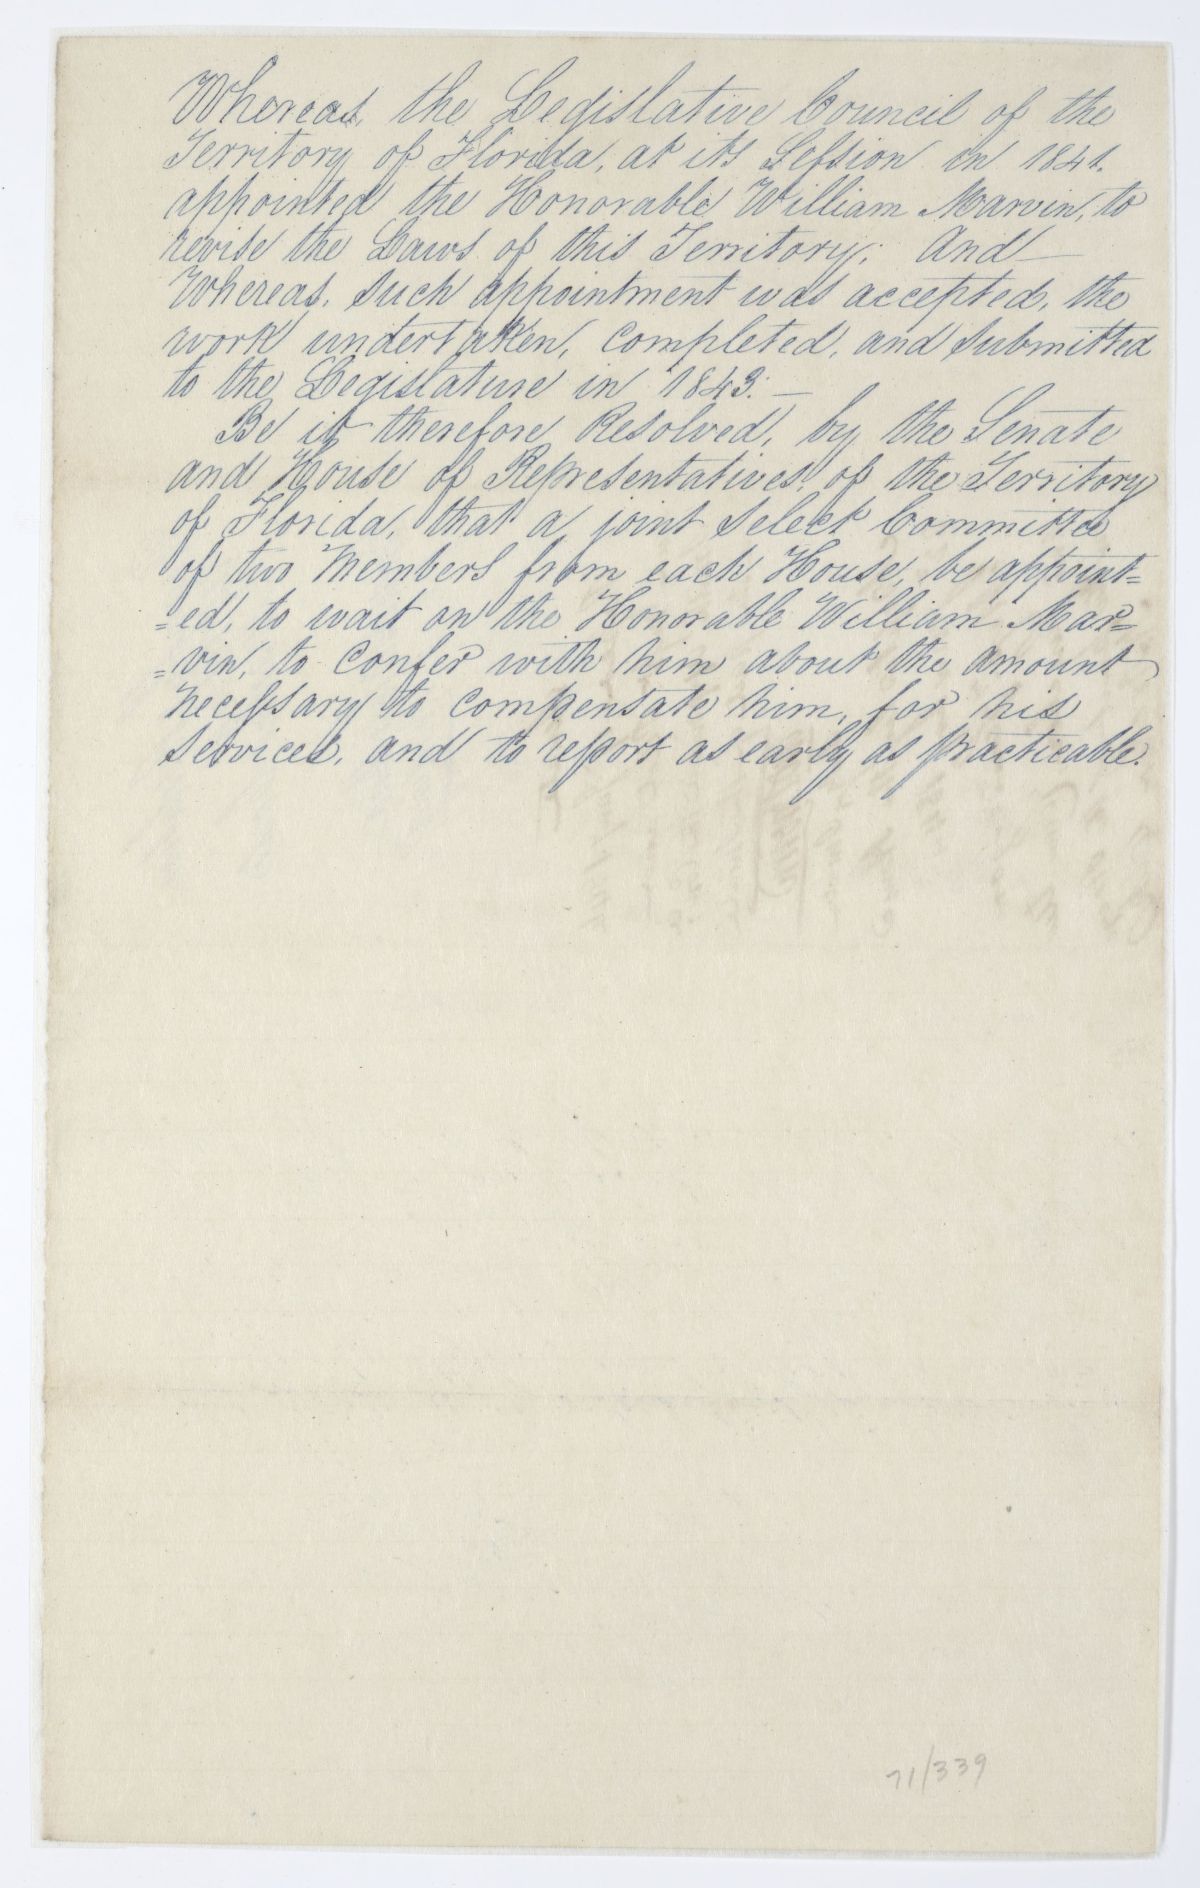 Whereas, the Legislative Council of the
Territory of Florida, at its Session in 1841.
appointed the Honorable William Marvin, to
revise the Laws of this Territory; And —
Whereas, such appointment was accepted, the
work undertaken, completed, and submitted
to the Legislature in 1843. —
Be it therefore Resolved, by the Senate
and House of Representatives, of the Territory
of Florida, that a joint select Committee
of two Members from each House, be appoint=
=ed, to wait on the Honorable William Mar=
=vin, to confer with him about the amount
necessary to compensate him, for his
services, and to report as early as practicable.
71/339